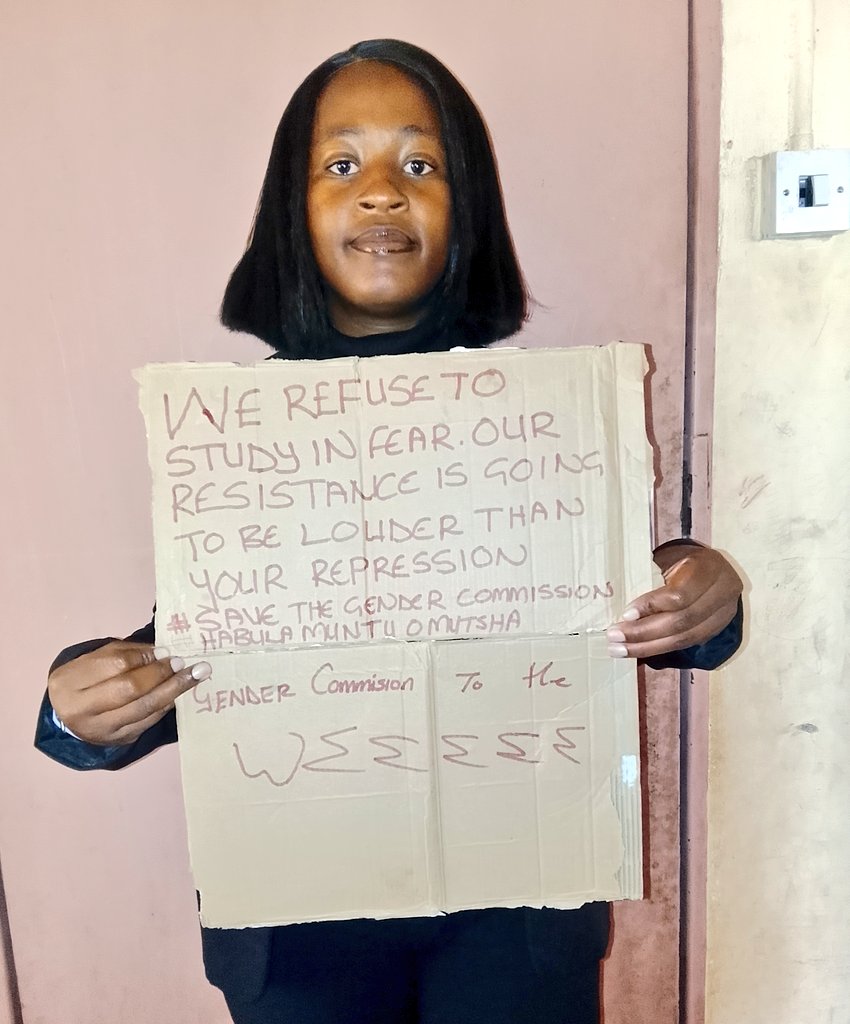 WE REFUSE TO
STUDY IN FEAR. OUR
RESISTANCE IS GOING
TO BE LOUDER THAN
YOUR REPRESSION
# SAVE THE GENDER COMMISSION
# HABULA MUNTU OMUTSHA
GENDER Commision To the
WEEEEE